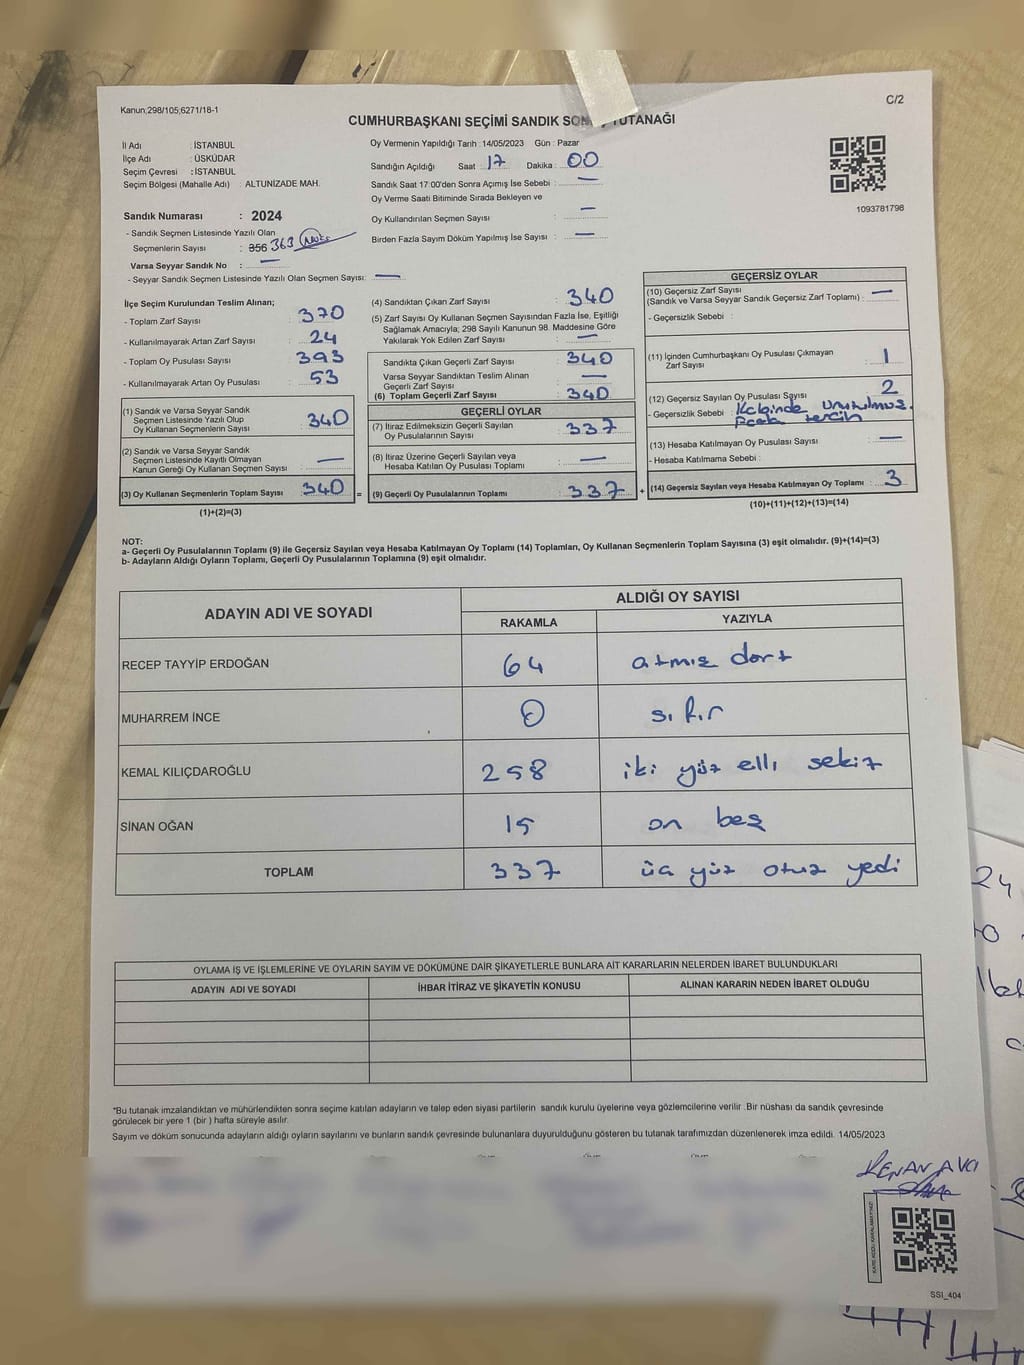 Kanun,298/105;6271/18-1
C/2
CUMHURBAŞKANI SEÇİMİ SANDIK SON TUTANAĞI
İl Adı : İSTANBUL
İlçe Adı : ÜSKÜDAR
Seçim Çevresi : İSTANBUL
Seçim Bölgesi (Mahalle Adı) : ALTUNİZADE MAH.
Oy Vermenin Yapıldığı Tarih : 14/05/2023 Gün : Pazar
Sandığın Açıldığı Saat 17 Dakika : 00
Sandık Saat 17:00'den Sonra Açımış İse Sebebi : —
Oy Verme Saati Bitiminde Sırada Bekleyen ve
Oy Kullandırılan Seçmen Sayısı : —
Birden Fazla Sayım Döküm Yapılmış İse Sayısı : —
1093781798
Sandık Numarası : 2024
- Sandık Seçmen Listesinde Yazılı Olan
Seçmenlerin Sayısı : 356 363
Varsa Seyyar Sandık No : —
- Seyyar Sandık Seçmen Listesinde Yazılı Olan Seçmen Sayısı: —
İlçe Seçim Kurulundan Teslim Alınan;
- Toplam Zarf Sayısı : 370
- Kullanılmayarak Artan Zarf Sayısı : 24
- Toplam Oy Pusulası Sayısı : 393
- Kullanılmayarak Artan Oy Pusulası : 53
(1) Sandık ve Varsa Seyyar Sandık
Seçmen Listesinde Yazılı Olup
Oy Kullanan Seçmenlerin Sayısı : 340
(2) Sandık ve Varsa Seyyar Sandık
Seçmen Listesinde Kayıtlı Olmayan
Kanun Gereği Oy Kullanan Seçmen Sayısı : —
(3) Oy Kullanan Seçmenlerin Toplam Sayısı : 340 =
(1)+(2)=(3)
(4) Sandıktan Çıkan Zarf Sayısı : 340
(5) Zarf Sayısı Oy Kullanan Seçmen Sayısından Fazla İse, Eşitliği
Sağlamak Amacıyla; 298 Sayılı Kanunun 98. Maddesine Göre
Yakılarak Yok Edilen Zarf Sayısı : —
Sandıkta Çıkan Geçerli Zarf Sayısı : 340
Varsa Seyyar Sandıktan Teslim Alınan
Geçerli Zarf Sayısı : —
(6) Toplam Geçerli Zarf Sayısı : 340
GEÇERLİ OYLAR
(7) İtiraz Edilmeksizin Geçerli Sayılan
Oy Pusulalarının Sayısı : 337
(8) İtiraz Üzerine Geçerli Sayılan veya
Hesaba Katılan Oy Pusulası Toplamı : —
(9) Geçerli Oy Pusulalarının Toplamı : 337 +
GEÇERSİZ OYLAR
(10) Geçersiz Zarf Sayısı
(Sandık ve Varsa Seyyar Sandık Geçersiz Zarf Toplamı) : —
- Geçersizlik Sebebi :
(11) İçinden Cumhurbaşkanı Oy Pusulası Çıkmayan
Zarf Sayısı : 1
(12) Geçersiz Sayılan Oy Pusulası Sayısı : 2
- Geçersizlik Sebebi : unutulmuş.
tercih
(13) Hesaba Katılmayan Oy Pusulası Sayısı : —
- Hesaba Katılmama Sebebi :
(14) Geçersiz Sayılan veya Hesaba Katılmayan Oy Toplamı : 3
(10)+(11)+(12)+(13)=(14)
NOT:
a- Geçerli Oy Pusulalarının Toplamı (9) ile Geçersiz Sayılan veya Hesaba Katılmayan Oy Toplamı (14) Toplamları, Oy Kullanan Seçmenlerin Toplam Sayısına (3) eşit olmalıdır. (9)+(14)=(3)
b- Adayların Aldığı Oyların Toplamı, Geçerli Oy Pusulalarının Toplamına (9) eşit olmalıdır.
ADAYIN ADI VE SOYADI ALDIĞI OY SAYISI
RAKAMLA YAZIYLA
RECEP TAYYİP ERDOĞAN 64 atmış dört
MUHARREM İNCE 0 sıfır
KEMAL KILIÇDAROĞLU 258 iki yüz elli sekiz
SİNAN OĞAN 15 on beş
TOPLAM 337 üç yüz otuz yedi
OYLAMA İŞ VE İŞLEMLERİNE VE OYLARIN SAYIM VE DÖKÜMÜNE DAİR ŞİKAYETLERLE BUNLARA AİT KARARLARIN NELERDEN İBARET BULUNDUKLARI
ADAYIN ADI VE SOYADI İHBAR İTİRAZ VE ŞİKAYETİN KONUSU ALINAN KARARIN NEDEN İBARET OLDUĞU
*Bu tutanak imzalandıktan ve mühürlendikten sonra seçime katılan adayların ve talep eden siyasi partilerin sandık kurulu üyelerine veya gözlemcilerine verilir .Bir nüshası da sandık çevresinde
görülecek bir yere 1 (bir ) hafta süreyle asılır.
Sayım ve döküm sonucunda adayların aldığı oyların sayılarını ve bunların sandık çevresinde bulunanlara duyurulduğunu gösteren bu tutanak tarafımızdan düzenlenerek imza edildi. 14/05/2023
KENAN AVCI
SSI_404
24